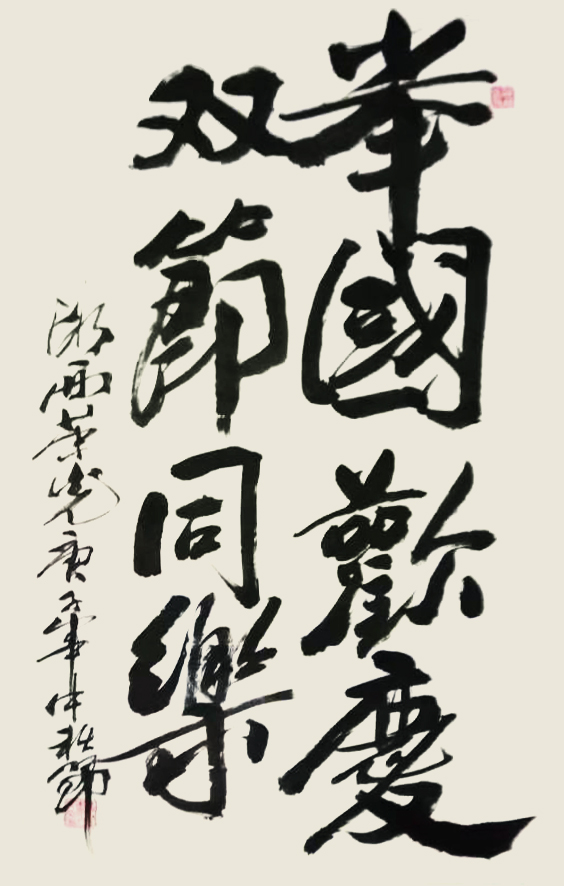 举國歡慶
双節同樂
湘西荣光庚子年中秋節